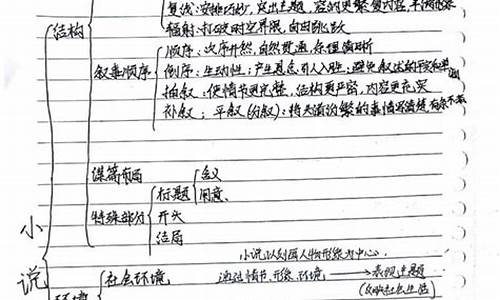 复线:安排巧妙,突出主题,容纳更繁复内容,
辐射:打破时空界限,自由跳跃
结构
顺序:次序井然,自然贯通,条理清晰
叙事顺序
倒序:生动性;产生悬念引人入胜;避免叙述的平板和单调
插叙:使情节更完整,结构更严密,内容更充实
补叙;平叙(分叙):将头绪纷繁的事情写清楚,有条不紊
谋篇布局
标题
含义
用意
特殊部分
开头
结局
小
说
小说以刻画人物形象为中心。
社会环境
通过情节、形象、环境
表现主题
(反映社会生活)
环境